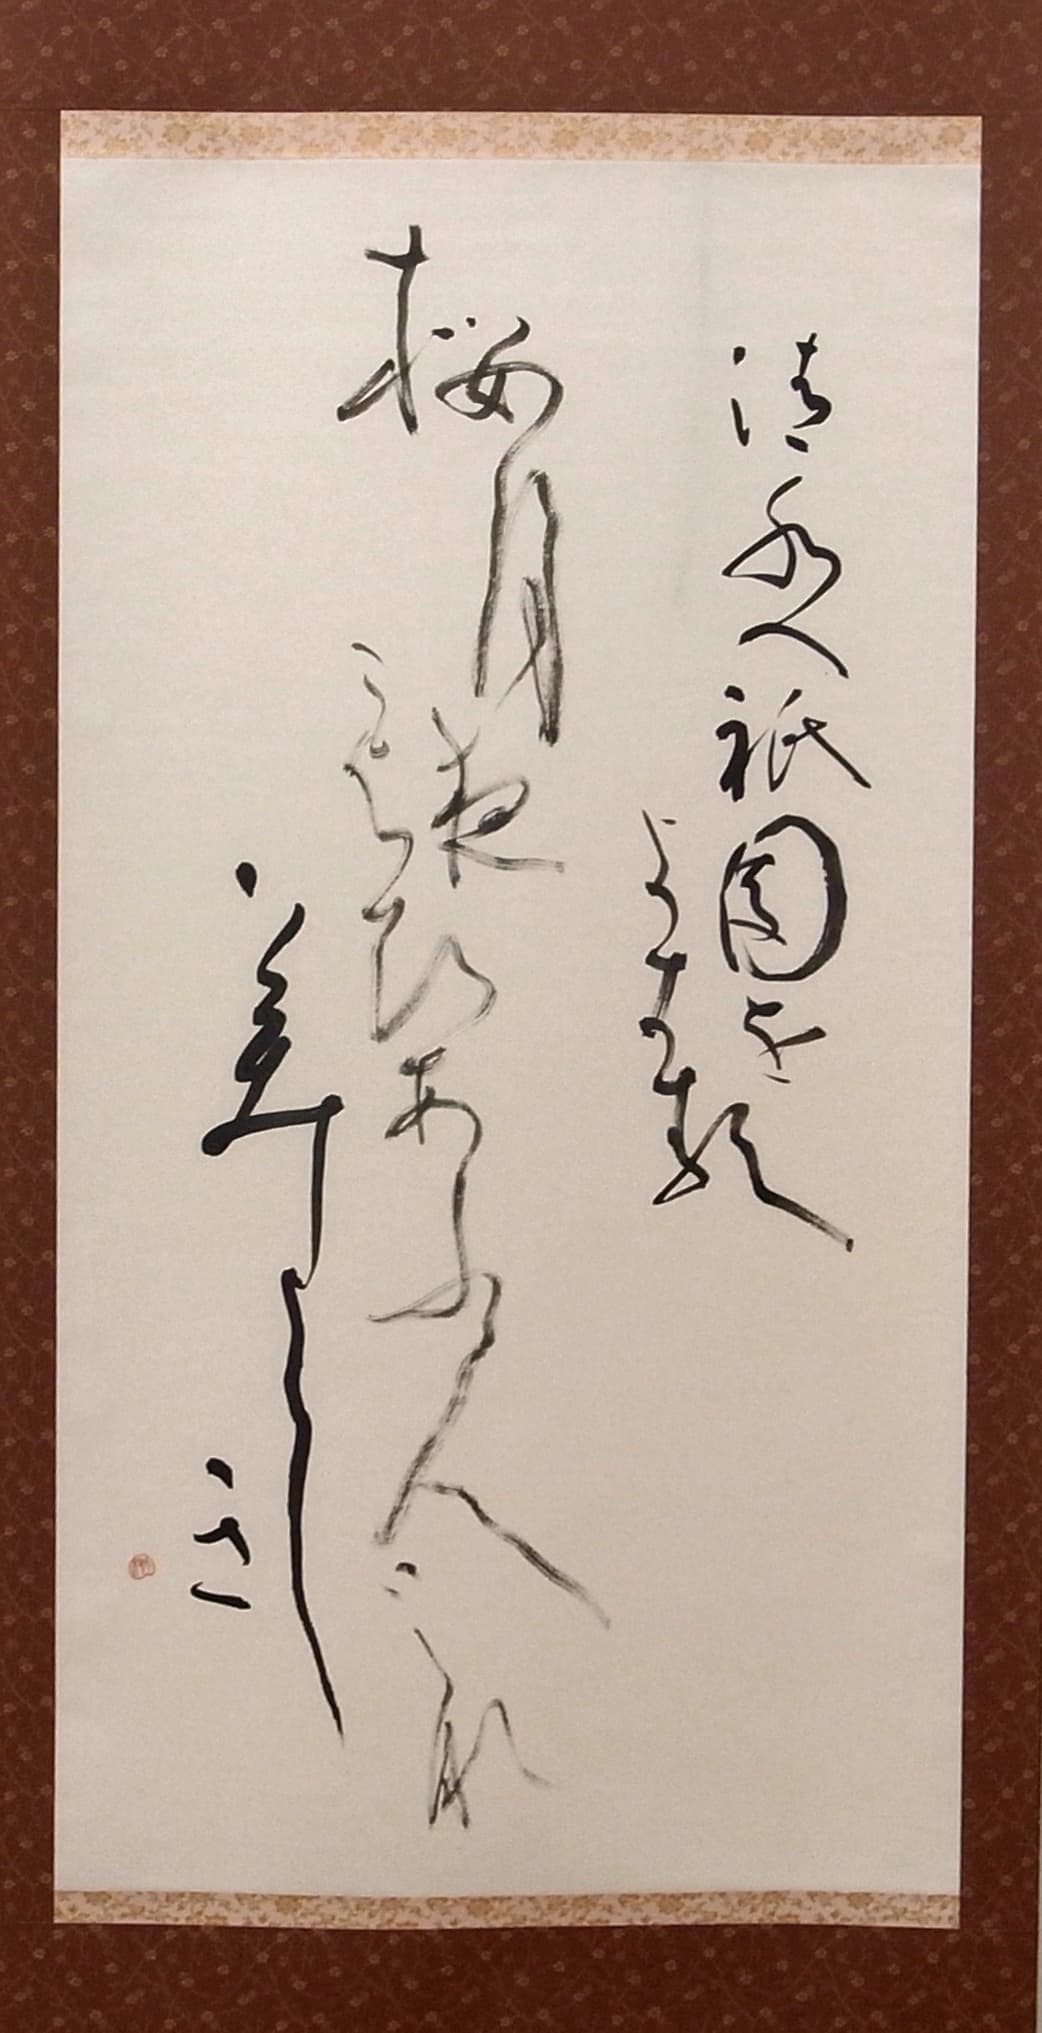 清水へ祇園を
よぎる
桜月夜
こよひあふ人み那
美し
き